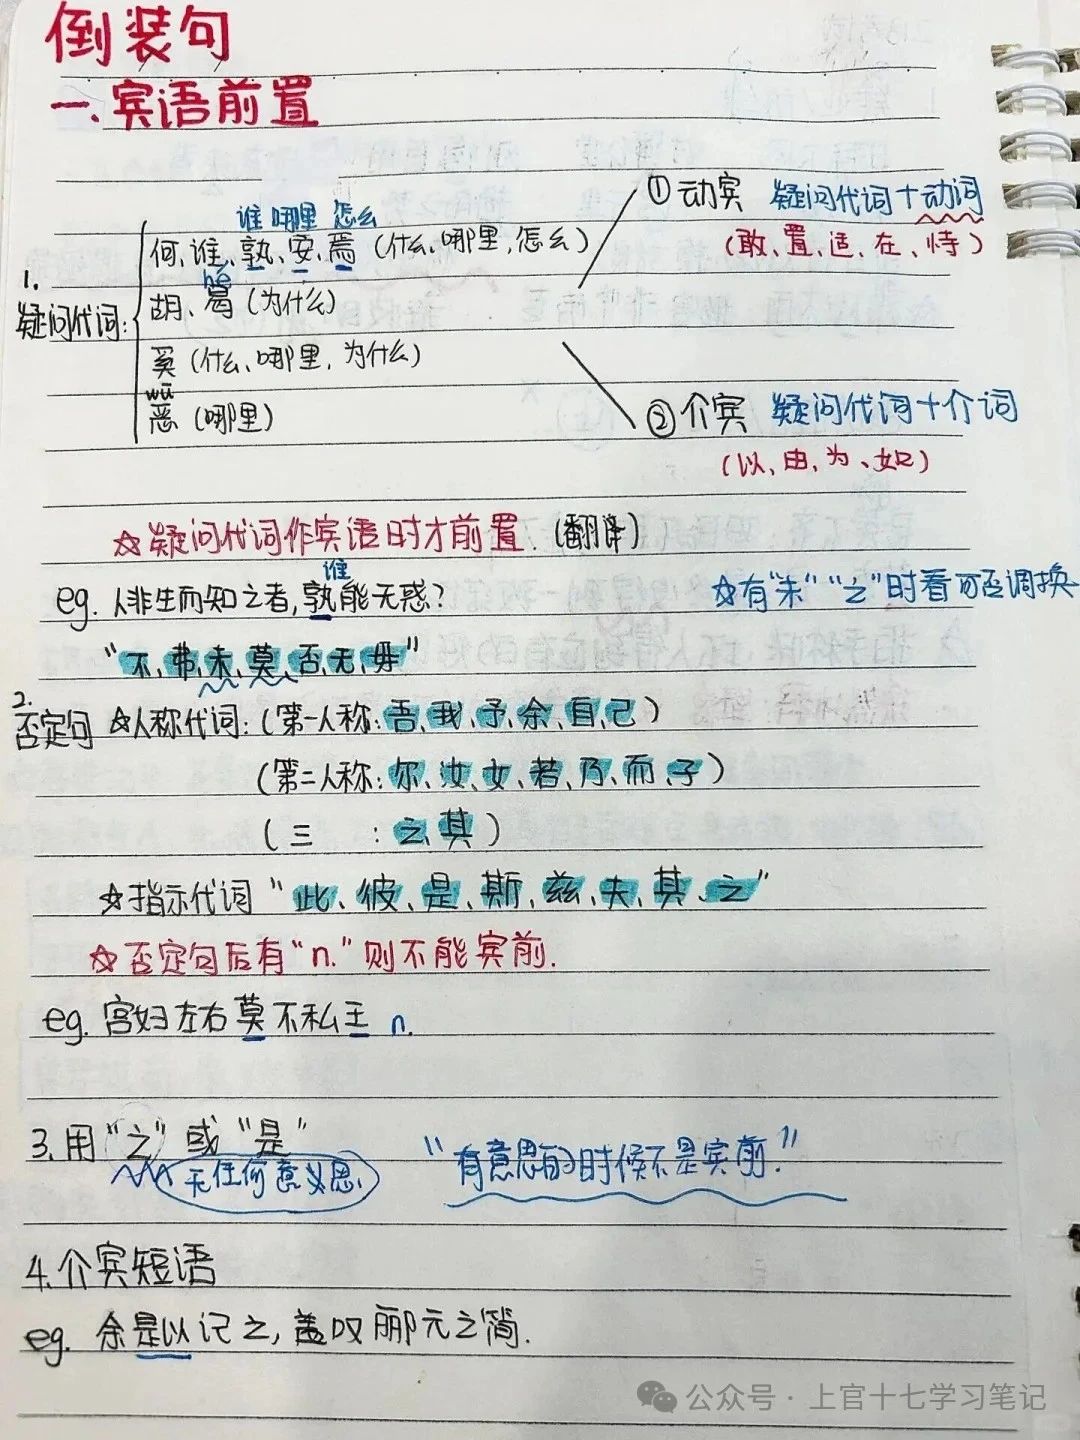 倒装句
一.宾语前置
①动宾 疑问代词+动词
(敢、置、适、在、恃)
谁 哪里 怎么
何、谁、孰、安、焉(什么、哪里,怎么)
hé
1.
疑问代词:
胡、曷(为什么)
奚(什么、哪里,为什么)
wū
恶(哪里)
②介宾 疑问代词+介词
(以、由、为、如)
☆疑问代词作宾语时才前置.(翻译)
谁
eg. 人非生而知之者,孰能无惑?
☆有"未""之"时看可否调换
"不、弗、未、莫、否、无、毋"
2.
否定句
☆人称代词:(第一人称:吾、我、予、余、自、己)
(第二人称:尔、汝、女、若、乃、而、子)
(三 :之、其)
☆指示代词"此、彼、是、斯、兹、夫、其、之"
☆否定句后有"n."则不能宾前.
eg. 宫妇左右莫不私王 n.
3.用"之"或"是"
无任何意义思.
"有意思的时候不是宾前."
4.介宾短语
eg. 余是以记之,盖叹郦元之简.
公众号·上官十七学习笔记